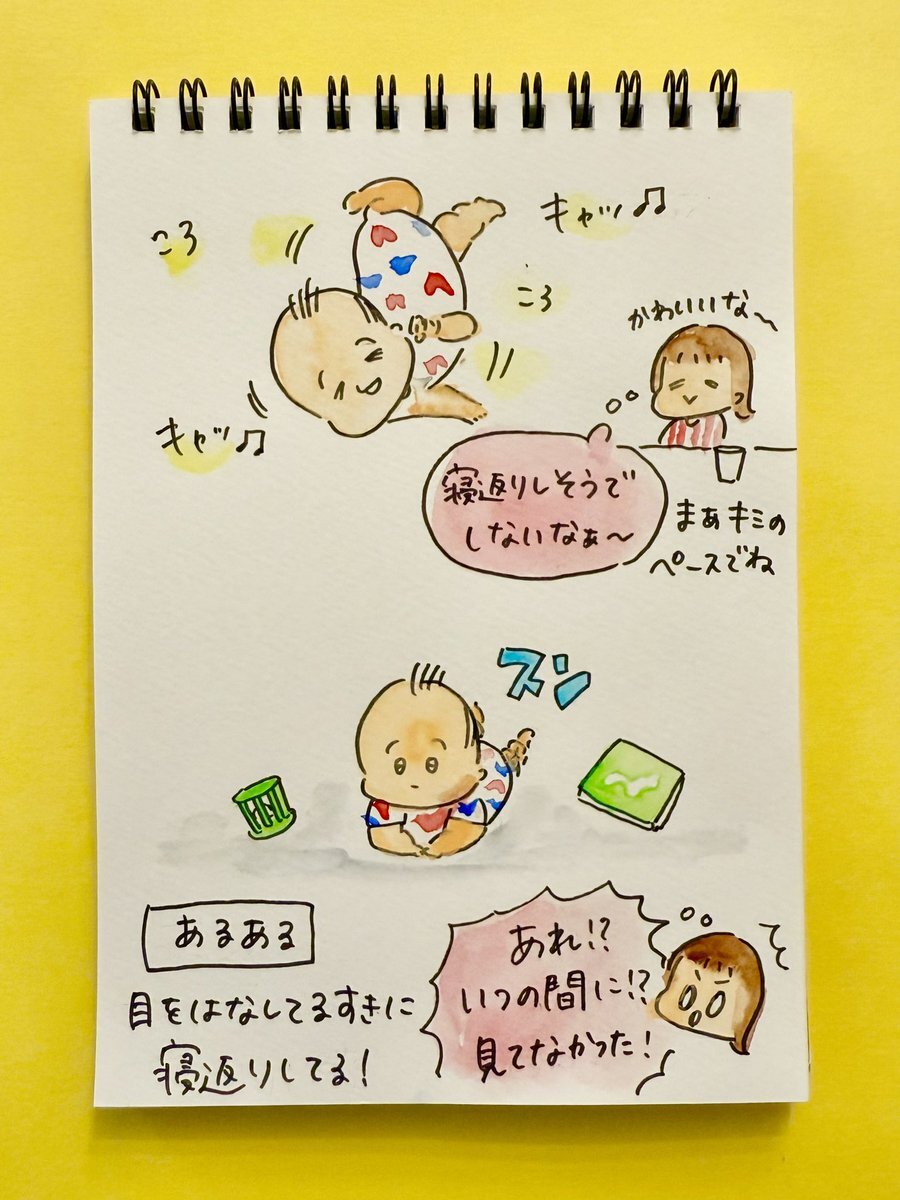 ころ
キャッ♫
ころ
かわいいな〜
キャッ♫
寝返りしそうで
しないなぁ〜
まぁキミの
ペースでね
スン
あるある
目をはなしてるすきに
寝返りしてる!
あれ!?
いつの間に!?
見てなかった!